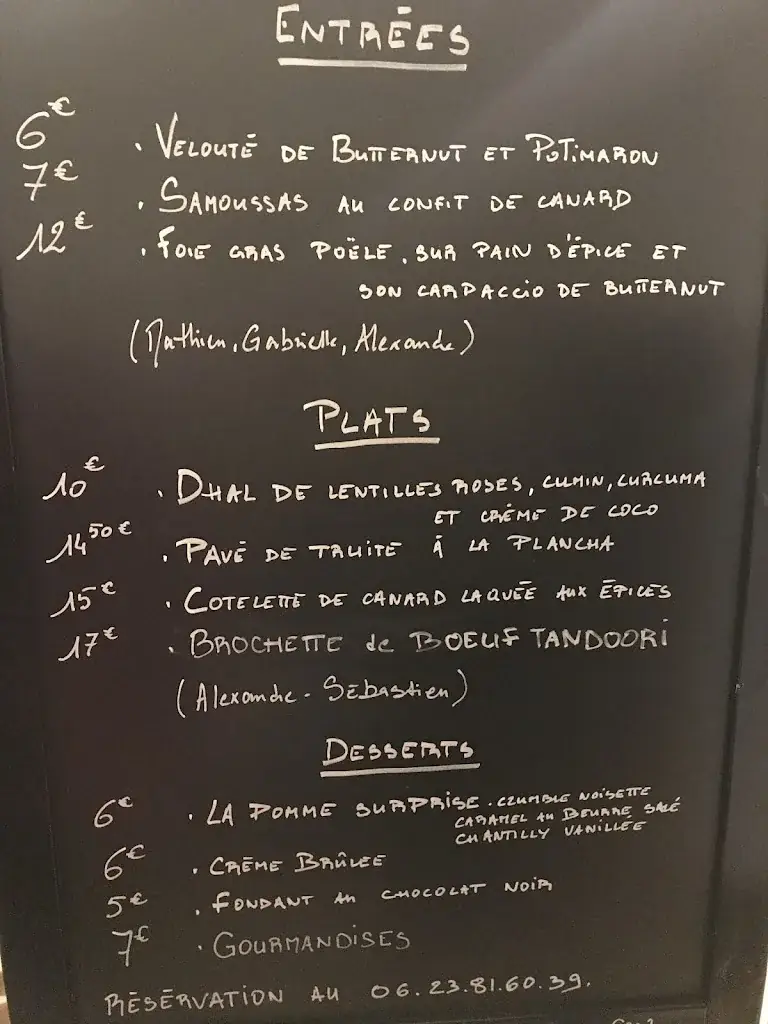 ENTRÉES
6€ . VELOUTÉ DE BUTTERNUT ET POTIMARON
7€ . SAMOUSSAS AU CONFIT DE CANARD
12€ . FOIE GRAS POËLÉ, SUR PAIN D'ÉPICE ET
SON CARPACCIO DE BUTTERNUT
(Mathieu, Gabrielle, Alexandre)
PLATS
10€ . DHAL DE LENTILLES ROSES, CUMIN, CURCUMA
ET CRÈME DE COCO
14 50€ . PAVÉ DE TRUITE À LA PLANCHA
15€ . COTELETTE DE CANARD LAQUÉE AUX ÉPICES
17€ . BROCHETTE de BOEUF TANDOORI
(Alexandre - Sébastien)
DESSERTS
6€ . LA POMME SURPRISE . CRUMBLE NOISETTE
CARAMEL AU BEURRE SALÉ
CHANTILLY VANILLÉE
6€ . CRÈME BRÛLÉE
5€ . FONDANT AU CHOCOLAT NOIR
7€ . GOURMANDISES
RÉSÉRVATION AU 06.23.81.60.39.